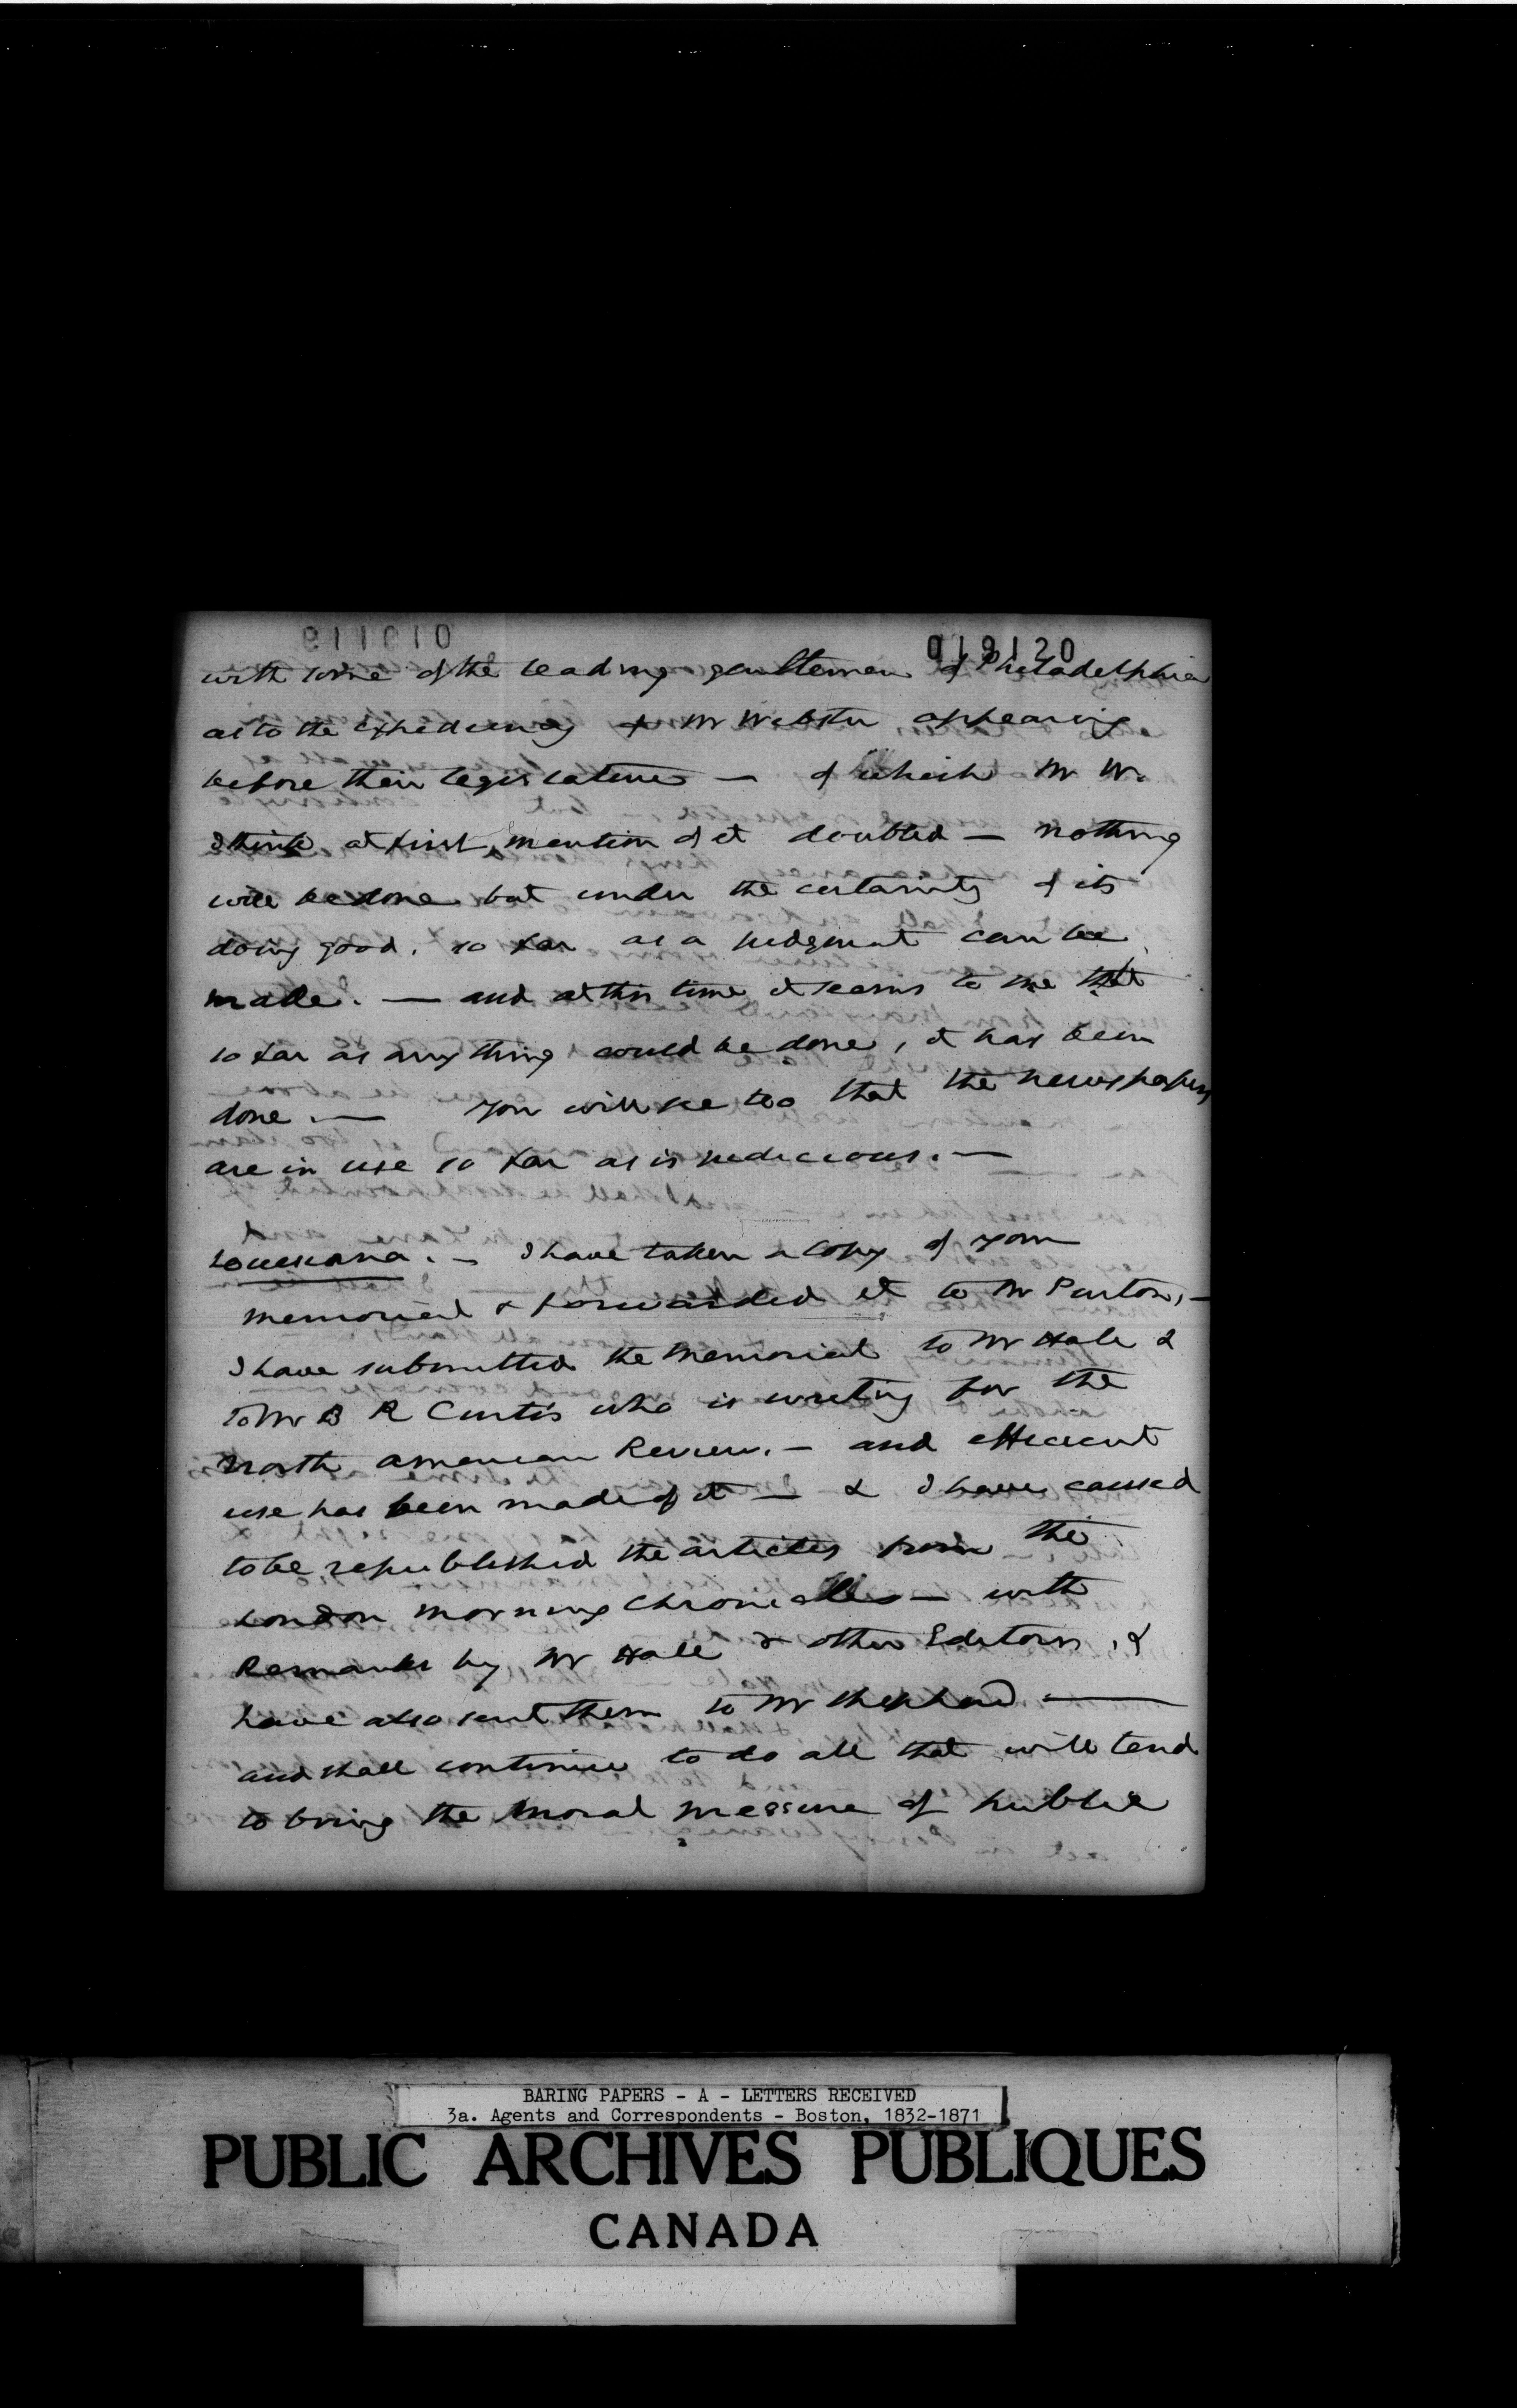 019120
with some of the leading gentlemen of Philadelphia
as to the expediency of Mr Webster appearing
before their legislature — of which Mr W.
I think at first mention of it doubted — nothing
will be done but under the certainty of its
doing good, so far as a judgment can be
made. — and at this time it seems to me that
so far as any thing could be done, it has been
done. — You will see too that the newspapers
are in use so far as is judicious. —
Louisiana. — I have taken a copy of your
memorial & forwarded it to Mr —
I have submitted the memorial to Mr Hale &
to Mr B R Curtis who is writing for the
North American Review. — and efficient
use has been made of it — & I have caused
to be republished the articles from the
London Morning Chronicle — with
Remarks by Mr Hale & other Editors, &
have also sent them to Mr —
and shall continue to do all that will tend
to bring the moral pressure of public
BARING PAPERS - A - LETTERS RECEIVED
3a. Agents and Correspondents - Boston, 1832-1871
PUBLIC ARCHIVES PUBLIQUES
CANADA